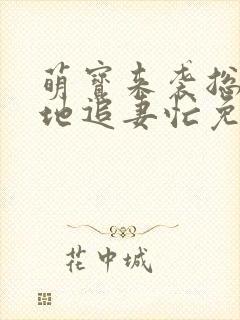 萌宝来袭总
地追妻忙免
花中城